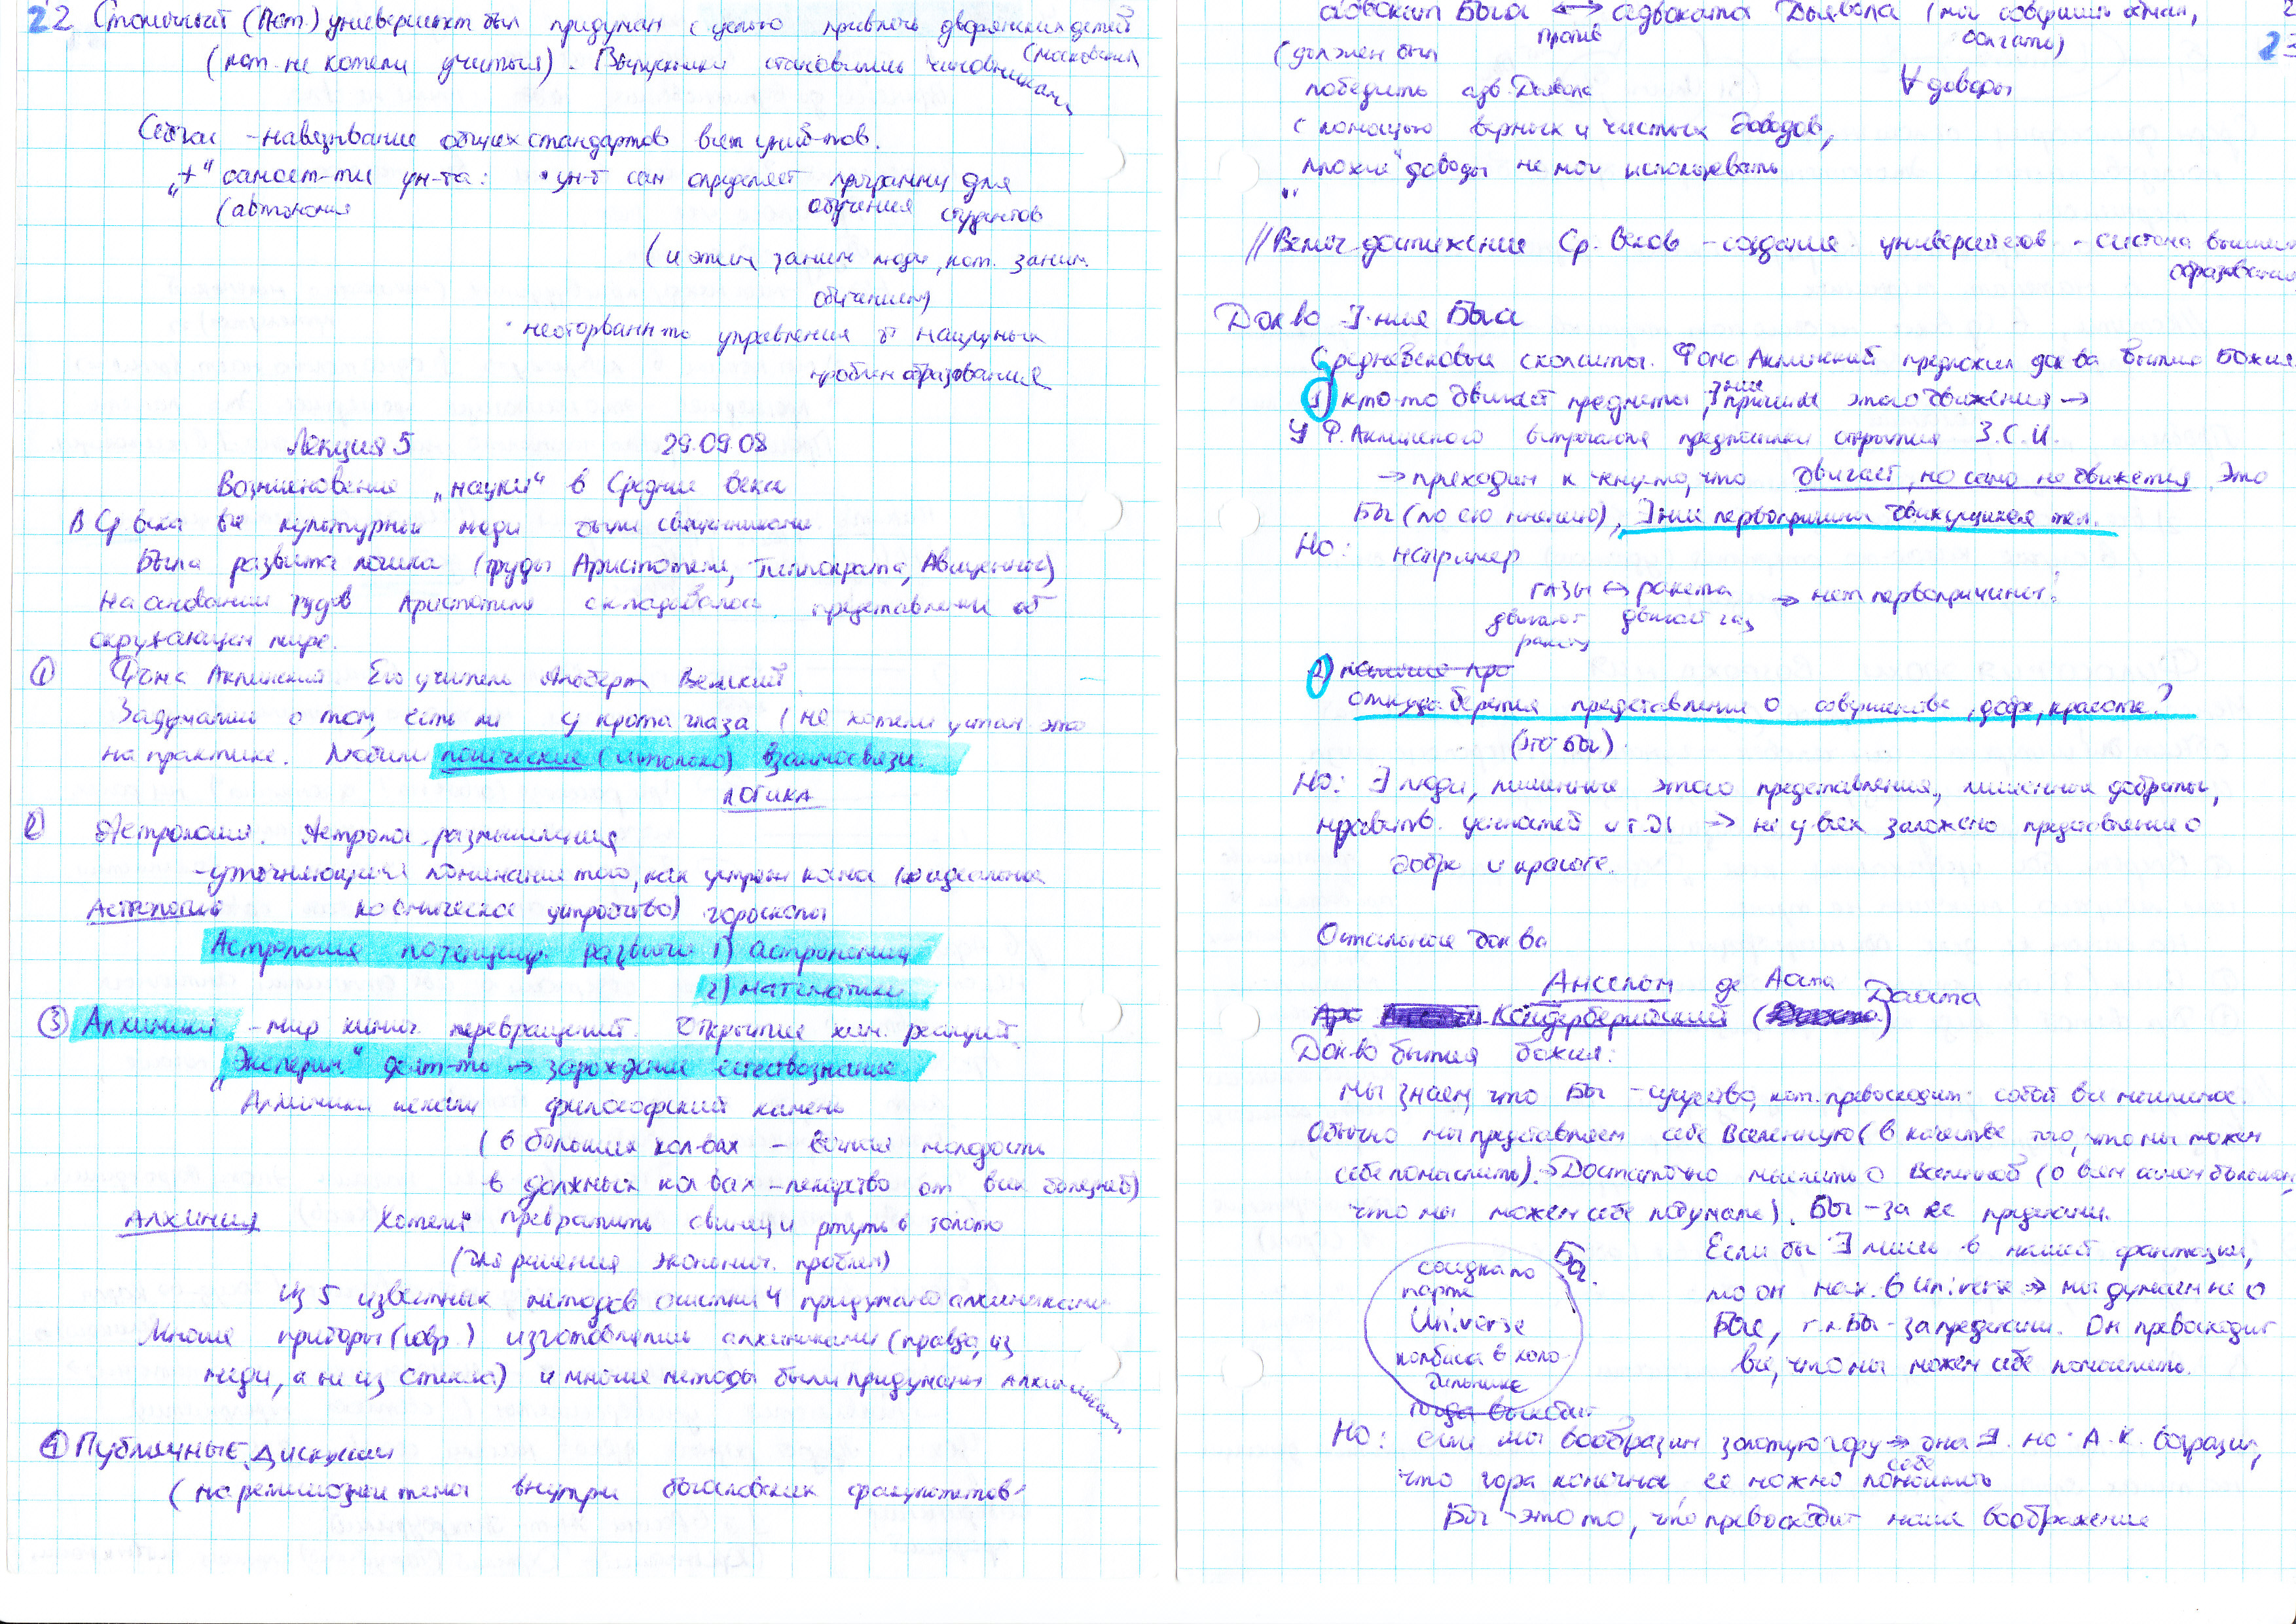 22 Столичный (Пет.) университет был придуман с целью привлечь дворянских детей
(кот. не хотели учиться). Выпускники становились чиновниками
(московский
Сейчас - навязывание общих стандартов всем унив-тов.
„+“ самост-ти ун-та: • ун-т сам определяет программу для
(автономия обучения студентов
(и этим заним люди, кот. заним.
обучением)
• неоторванн-ть управления от насущных
проблем образования
Лекция 5 29.09.08
Возникновение „науки“ в Средние века
В Ср века все культурные люди были священниками
Была развита логика (труды Аристотеля, Гиппократа, Авиценны)
На основании трудов Аристотеля складывалось представление об
окружающем мире.
① Фома Аквинский Его учитель Альберт Великий.
Задумались о том, есть ли у крота глаза. (не хотели устан это
на практике. Любили логические (и только) взаимосвязи.
логика
② Астрология. Астролог. размышления
- уточняющий понимание того, как устроен космос (
Астрология космическое устройство) гороскопы
Астрология потенциир. развитие 1) астрономии
2) математики
③ Алхимики - мир химич. перевращений. Открытие хим. реакций.
„Эксперим.“ деят-ть → зарождение естествознания
Алхимики искали философский камень
(в больших кол-вах - вечная молодость
в должных кол-вах - лекарство от всех болезней)
Алхимия Хотели превратить свинец и ртуть в золото
(для решения экономич. проблем)
Из 5 известных методов очистки 4 придумано алхимиками
Многие приборы (совр.) изготовлялись алхимиками (правда, из
меди, а не из стекла) и многие методы были придуманы алхимиками
④ Публичные дискуссии
(на религиозные темы внутри богословских факультетов
23
Бога ↔ адвоката Дьявола (мог совершать обман,
против болтать)
(должен был ∀ доводы
победить адв. Дьявола
с помощью верных и чистых доводов,
„плохие“ доводы не мог использовать
// Велич. достижение Ср. веков - создание университетов - система высшего
образования
Док-во ∃-ния Бога
Средневековые схоласты. Фома Аквинский предложил док-ва бытия Божия
1) кто-то двигает предметы, ∃ние причины этого движения →
У Ф. Аквинского встречаются предпосылки открытия З.С.И.
→ приходим к чему-то, что двигает, но само не движется. Это
Бог (по его мнению), ∃ние первопричины движущихся тел.
Но: например
газы ↔ ракета → нет первопричины!
двигают двигает газ
ракету
2) наличие пре
откуда берётся представление о совершенстве, добре, красоте?
(это Бог).
Но: ∃ люди, лишенные этого представления, лишенные доброты,
нравств. ценностей и т.д. → не у всех заложено представление о
добре и красоте.
Остальные док-ва
Ансельм де Аоста Даоста
Кентерберийский
Док-во бытия божия:
Мы знаем, что Бог - существо, кот. превосходит собой все мыслимое.
Обычно мы представляем себе Вселенную (в качестве того, что мы можем
себе помыслить). → Достаточно мыслить о Вселенной (о всем самом большом,
что мы можем себе подумать). Бог - за ее пределами.
Бог. Если бы ∃ лишь в нашей фантазии,
то он нах. в Universe → мы думаем не о
Боге, т.к. Бог - за пределами. Он превосходит
все, что мы можем себе помыслить.
парта
Universe
колбаса в холо-
дильнике
тогда выходит
Но: если мы вообразим золотую гору → она ∃. но А.К. возразил,
что гора конечна, ее можно себе помыслить
Бог - это то, что превосходит наше воображение